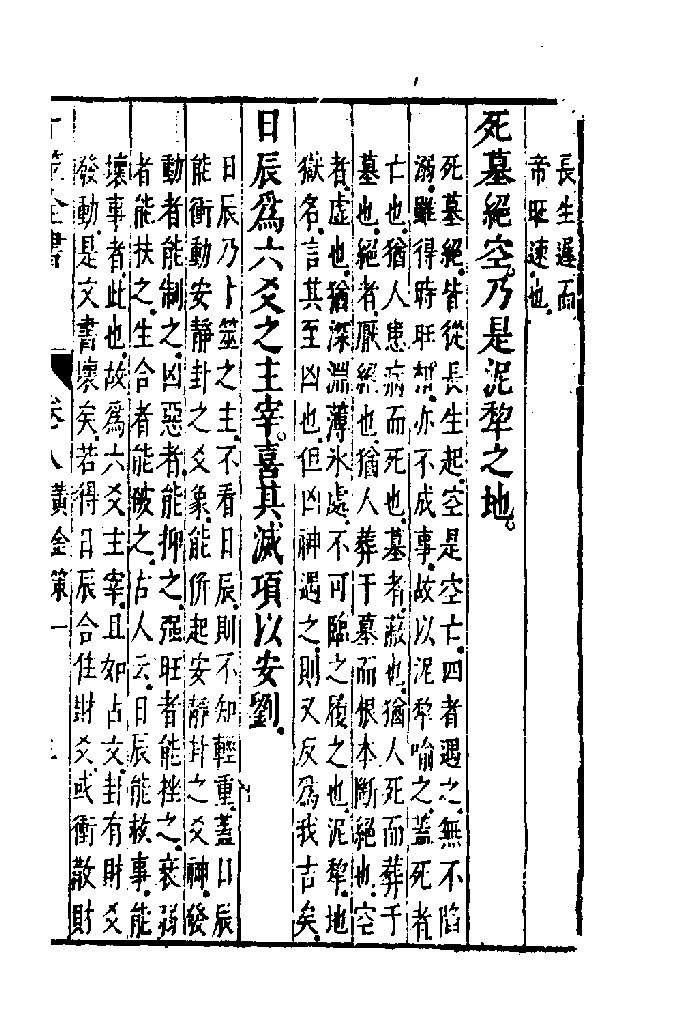 長生遲而
帝旺速也
死墓絕空。乃是泥犁之地。
死墓絕。皆從長生起。空是空亡。四者遇之。無不陷
溺。雖得時旺幇。亦不成事。故以泥犁喻之。蓋死者。
亡也。猶人患病而死也。墓者。蔽也。猶人死而葬于
墓也。絕者。厭絕也。猶人葬于墓而恨本斷絕也。空
者。虛也。猶深淵薄氷處。不可臨之履之也。泥犁。地
獄名。言其至凶也。但凶神遇之。則又反爲我吉矣。
日辰爲六爻之主宰。喜其滅項以安劉。
日辰乃卜筮之主。不看日辰。則不知輕重。蓋日辰
能衝動安靜卦之爻象。能併起安靜卦之爻神。發
動者能制之。凶惡者。能抑之。强旺者能挫之。衰弱
者能扶之。生合者能破之。古人云。日辰能救事。能
壞事者。此也。故爲六爻主宰。且如占文。卦有財爻
發動。是文書壞矣。若得日辰合住財爻。或衝散財
卜筮全書 卷八 黃金策一